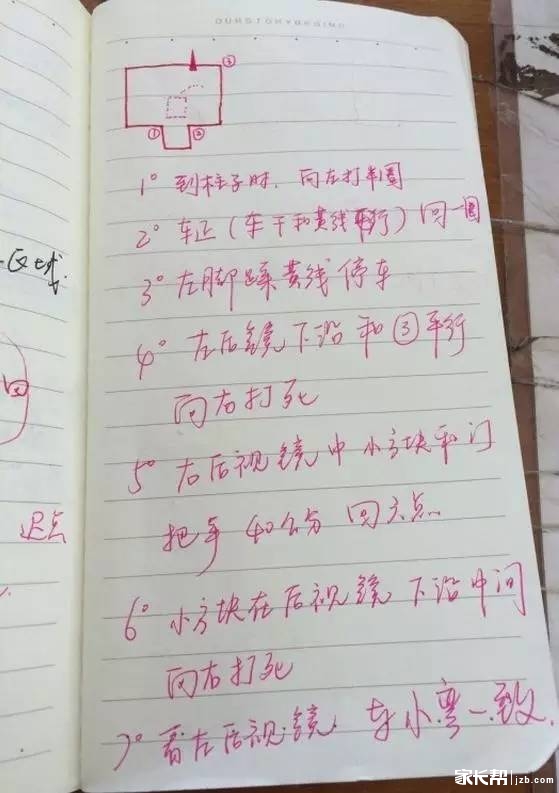 ③
① ②
1° 到柱子时,向左打半圈
2° 车正(车干和黄线平行)回一圈
3° 左脚踩黄线停车
4° 左后镜下沿和③平行
向右打死
5° 右后视镜中小方块和门
把手40公分 回六点
6° 小方块在后视镜下沿中间
向右打死
7° 看左后视镜 车小弯一致
区域
田
迟点
家长帮 jzb.com